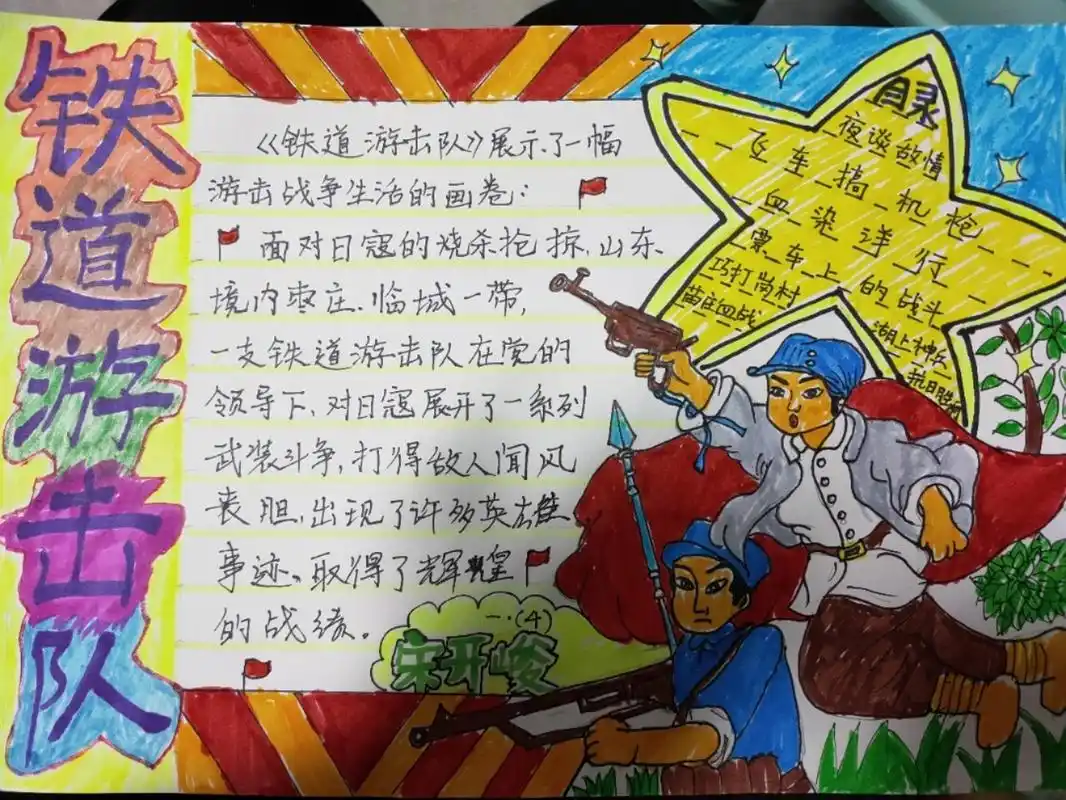 铁道游击队
《铁道游击队》展示了一幅
游击战争生活的画卷：
面对日寇的烧杀抢掠,山东
境内枣庄.临城一带,
一支铁道游击队在党的
领导下,对日寇展开了一系列
武装斗争,打得敌人闻风
丧胆,出现了许多英雄
事迹。取得了辉煌
的战绩。
一·(4)
宋开峻
目录
夜谈敌情
飞车搞机枪
血染洋行
票车上的战斗
巧打岗村
苗庄血战
湖上神兵